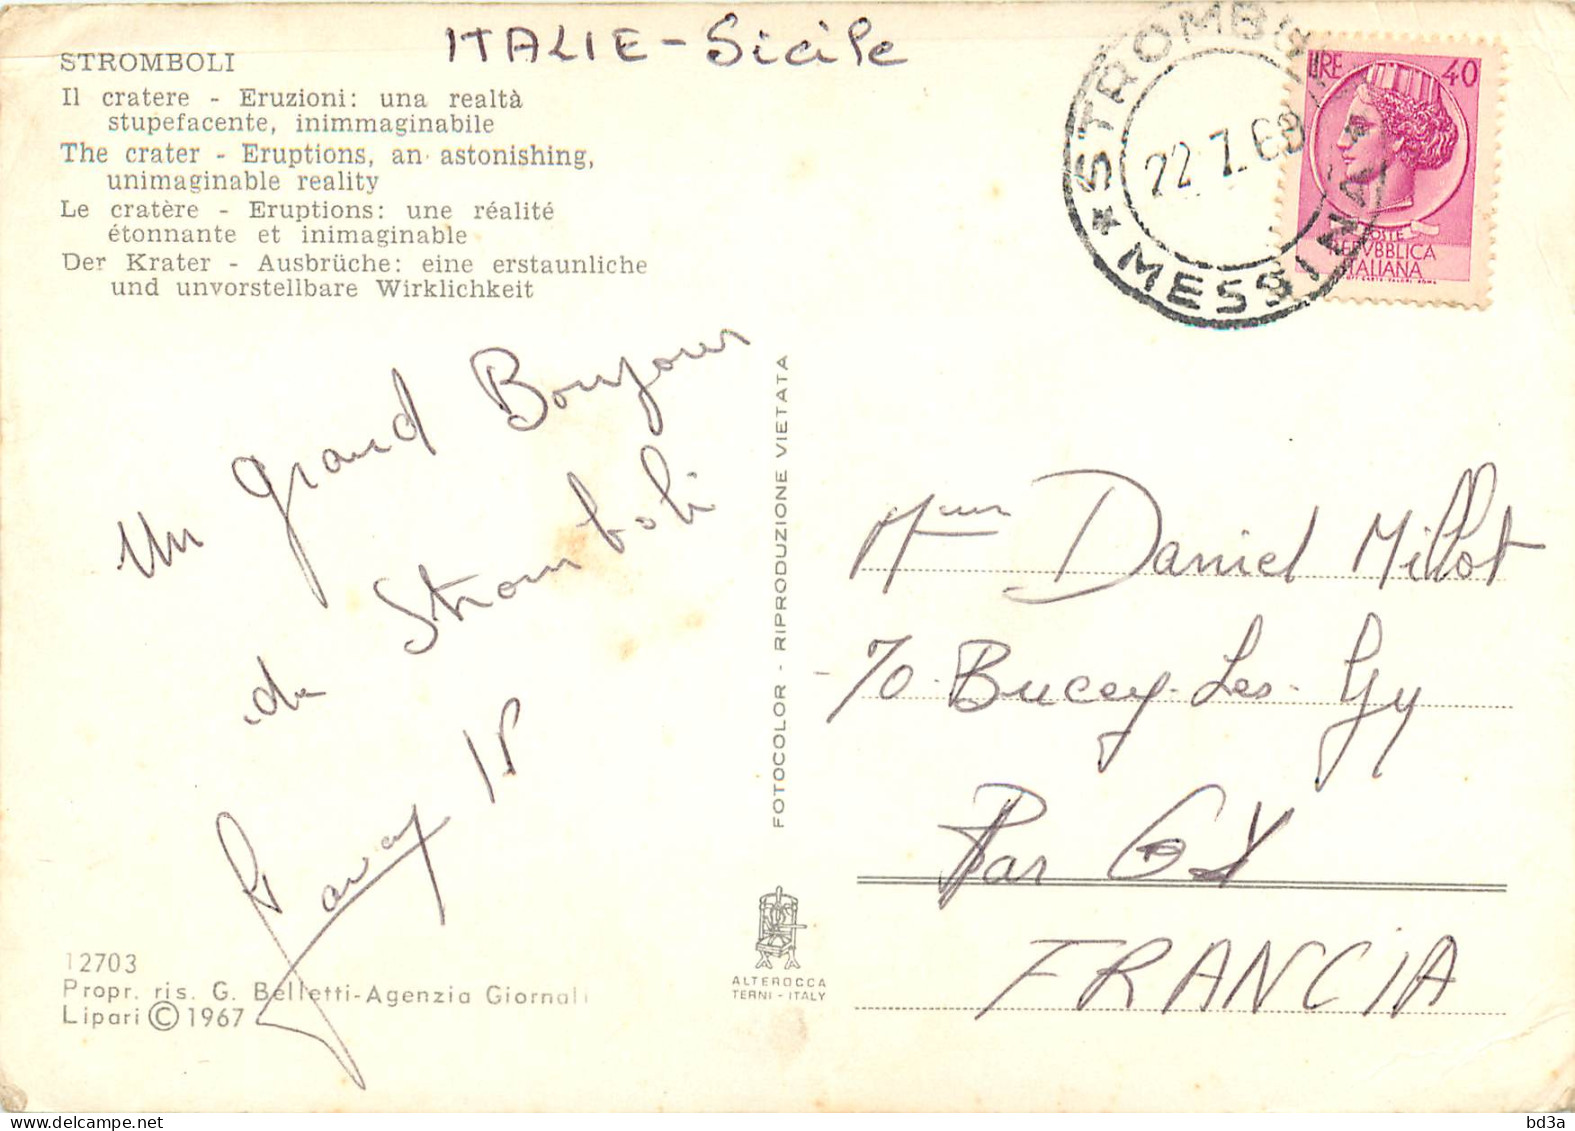 ITALIE - Sicile
STROMBOLI
Il cratere - Eruzioni: una realtà
stupefacente, inimmaginabile
The crater - Eruptions, an astonishing,
unimaginable reality
Le cratère - Eruptions: une réalité
étonnante et inimaginable
Der Krater - Ausbrüche: eine erstaunliche
und unvorstellbare Wirklichkeit
STROMBOLI
22.7.68
* MESSINA *
LIRE 40
POSTE
REPVBBLICA
ITALIANA
Un grand Bonjour
de Stromboli
12703
Propr. ris. G. Belletti-Agenzia Giornali
Lipari © 1967
FOTOCOLOR - RIPRODUZIONE VIETATA
ALTEROCCA
TERNI - ITALY
Daniel Millot
70. Bucey-Les-Gy
Par GY
FRANCIA
bd3a